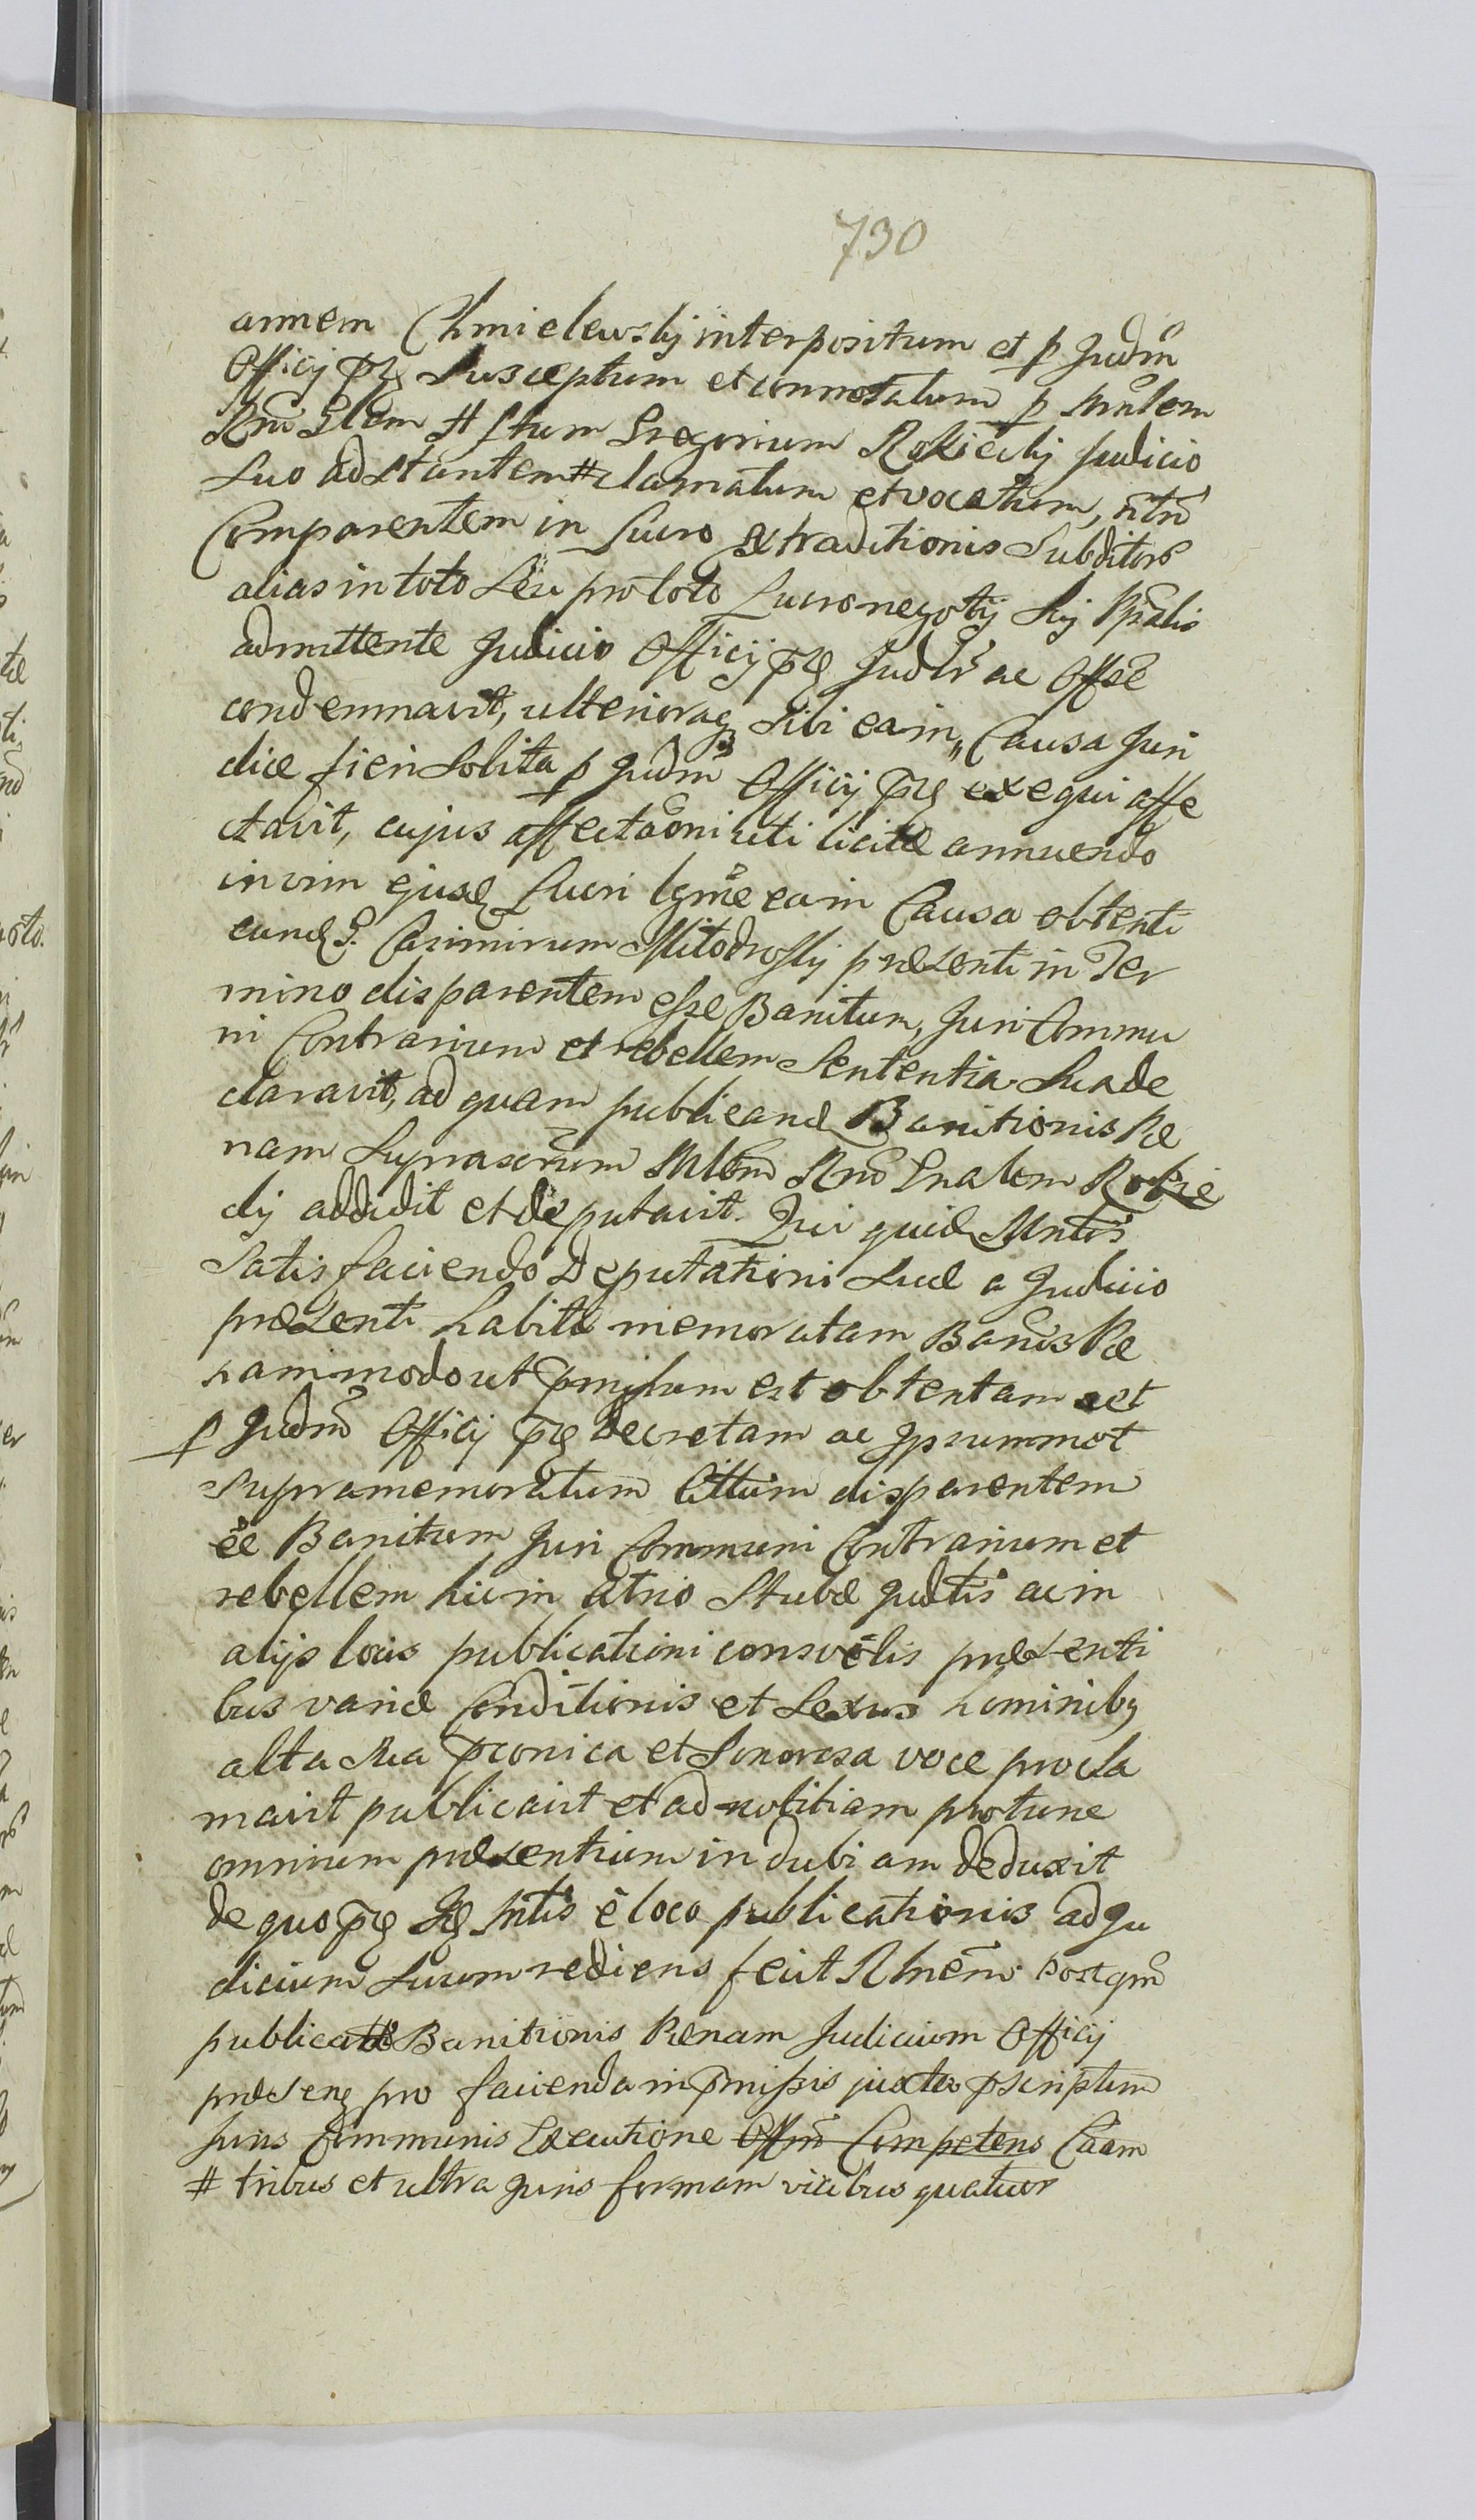 730
annem Chmielewskij interpositum et p Judm
Officij pns Susceptum et connotatum p Mnlem
Rnm Glem H Stum Gregorium Rokickij Judicio
Suo adstantem # clamatum et vocatum, ntn
Comparentem in Lucro Extraditionis Subditors
alias in toto Seu pro toto Lucro negotij Sui Ppalis
admittente Judicio Officij pns Judlr ac Offse
condemnavit, ulterioraq Sibi ea in Causa Juri
dice fieri Solita p Judm Officij pns exequi affe
ctavit, cujus affectaoni uti licite annuendo
in vim ejusd Lucri lgme ea in Causa obtenti
eund G. Casimirum presenti in Ter
mino disparentem esse Banitum, Juri Commu
ni Contrarium et rebellem Sententia Sua de
claravit, ad quam publicand Banitionis Pæ
nam Suprascrum Mlem Rnm Gnalem Rokic
kij addidit et deputavit. Qui quid Mntis
Satisfaciendo Deputationi Suæ a Judicio
præsenti habitæ memoratam Banis Pæ
nam modo ut pmissum est obtentam et
p Judm Officij pns decretam ac Ipsummet
supramemoratum Cittum disparentem
ee Banitum Juri Communi Contrarium et
rebellem hic in atrio Stubæ Judlis ac in
alijs locis publicationi consvetis præsenti
bus variæ Conditionis et Sexus hominibq
alta sua pconica et Sonorosa voce procla
mavit publicavit et ad notitiam protunc
omnium præsentium indubiam deduxit
de quo pns Id Mntis e loco publicationis ad Ju
dicium Suum rediens fecit Rlnem. Postqm
publicatæ Banitionis Pænam Judicium Officij
præsens pro facienda in pmissis juxta pscriptum
Juris Communis Executione Offm Competens Caam
# tribus et ultra Juris formam vicibus quatuor